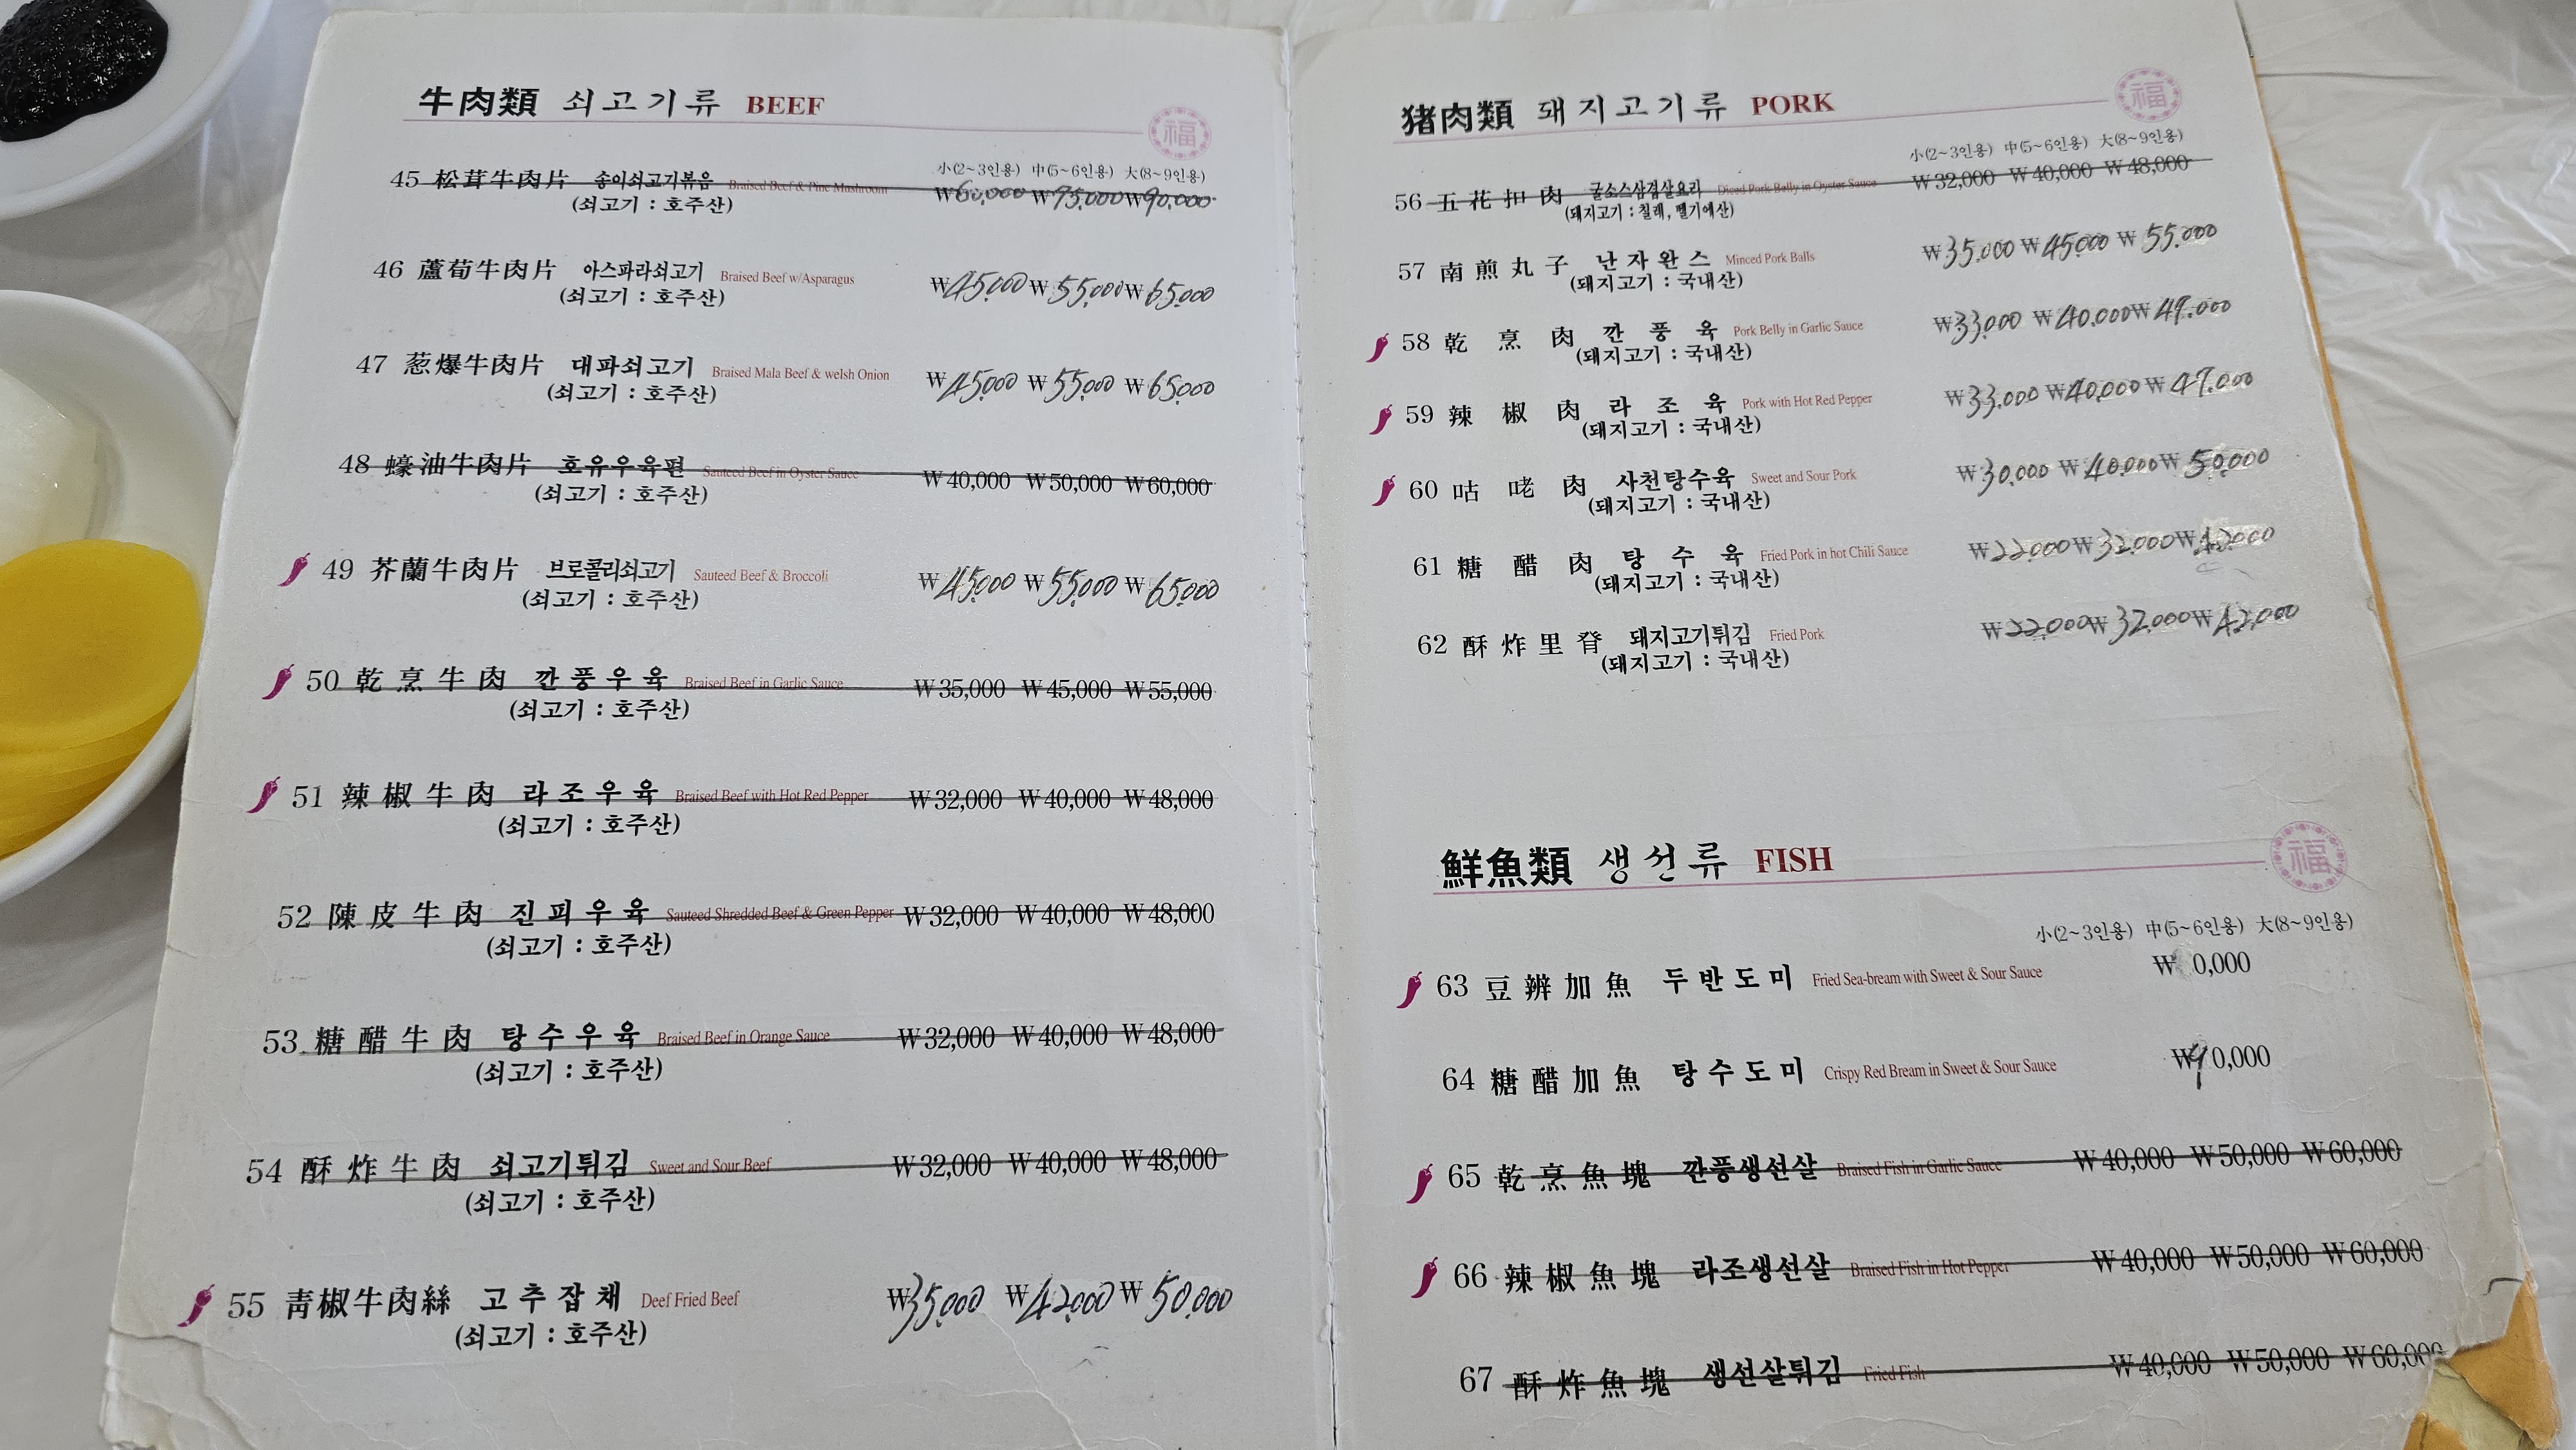 牛肉類 쇠고기류 BEEF
福
小(2~3인용) 中(5~6인용) 大(8~9인용)
45 松茸牛肉片 송이쇠고기볶음 Braised Beef & Pine Mushroom ₩60,000 ₩75,000 ₩90,000
(쇠고기 : 호주산)
46 蘆荀牛肉片 아스파라쇠고기 Braised Beef w/Asparagus ₩45,000 ₩55,000 ₩65,000
(쇠고기 : 호주산)
47 葱爆牛肉片 대파쇠고기 Braised Mala Beef & welsh Onion ₩45,000 ₩55,000 ₩65,000
(쇠고기 : 호주산)
48 蠔油牛肉片 호유우육편 Sauteed Beef in Oyster Sauce ₩40,000 ₩50,000 ₩60,000
(쇠고기 : 호주산)
49 芥蘭牛肉片 브로콜리쇠고기 Sauteed Beef & Broccoli ₩45,000 ₩55,000 ₩65,000
(쇠고기 : 호주산)
50 乾烹牛肉 깐풍우육 Braised Beef in Garlic Sauce ₩35,000 ₩45,000 ₩55,000
(쇠고기 : 호주산)
51 辣椒牛肉 라조우육 Braised Beef with Hot Red Pepper ₩32,000 ₩40,000 ₩48,000
(쇠고기 : 호주산)
52 陳皮牛肉 진피우육 Sauteed Shredded Beef & Green Pepper ₩32,000 ₩40,000 ₩48,000
(쇠고기 : 호주산)
53 糖醋牛肉 탕수우육 Braised Beef in Orange Sauce ₩32,000 ₩40,000 ₩48,000
(쇠고기 : 호주산)
54 酥炸牛肉 쇠고기튀김 Sweet and Sour Beef ₩32,000 ₩40,000 ₩48,000
(쇠고기 : 호주산)
55 靑椒牛肉絲 고추잡채 Deef Fried Beef ₩35,000 ₩42,000 ₩50,000
(쇠고기 : 호주산)
猪肉類 돼지고기류 PORK
福
小(2~3인용) 中(5~6인용) 大(8~9인용)
56 五花扣肉 굴소스삼겹살요리 Diced Pork Belly in Oyster Sauce ₩32,000 ₩40,000 ₩48,000
(돼지고기 : 칠레, 벨기에산)
57 南煎丸子 난자완스 Minced Pork Balls ₩35,000 ₩45,000 ₩55,000
(돼지고기 : 국내산)
58 乾烹肉 깐풍육 Pork Belly in Garlic Sauce ₩33,000 ₩40,000 ₩47,000
(돼지고기 : 국내산)
59 辣椒肉 라조육 Pork with Hot Red Pepper ₩33,000 ₩40,000 ₩47,000
(돼지고기 : 국내산)
60 咕咾肉 사천탕수육 Sweet and Sour Pork ₩30,000 ₩40,000 ₩50,000
(돼지고기 : 국내산)
61 糖醋肉 탕수육 Fried Pork in hot Chili Sauce ₩22,000 ₩32,000 ₩42,000
(돼지고기 : 국내산)
62 酥炸里脊 돼지고기튀김 Fried Pork ₩22,000 ₩32,000 ₩42,000
(돼지고기 : 국내산)
鮮魚類 생선류 FISH
福
小(2~3인용) 中(5~6인용) 大(8~9인용)
63 豆辨加魚 두반도미 Fried Sea-bream with Sweet & Sour Sauce ₩ 0,000
64 糖醋加魚 탕수도미 Crispy Red Bream in Sweet & Sour Sauce ₩90,000
65 乾烹魚塊 깐풍생선살 Braised Fish in Garlic Sauce ₩40,000 ₩50,000 ₩60,000
66 辣椒魚塊 라조생선살 Braised Fish in Hot Pepper ₩40,000 ₩50,000 ₩60,000
67 酥炸魚塊 생선살튀김 Fried Fish ₩40,000 ₩50,000 ₩60,000